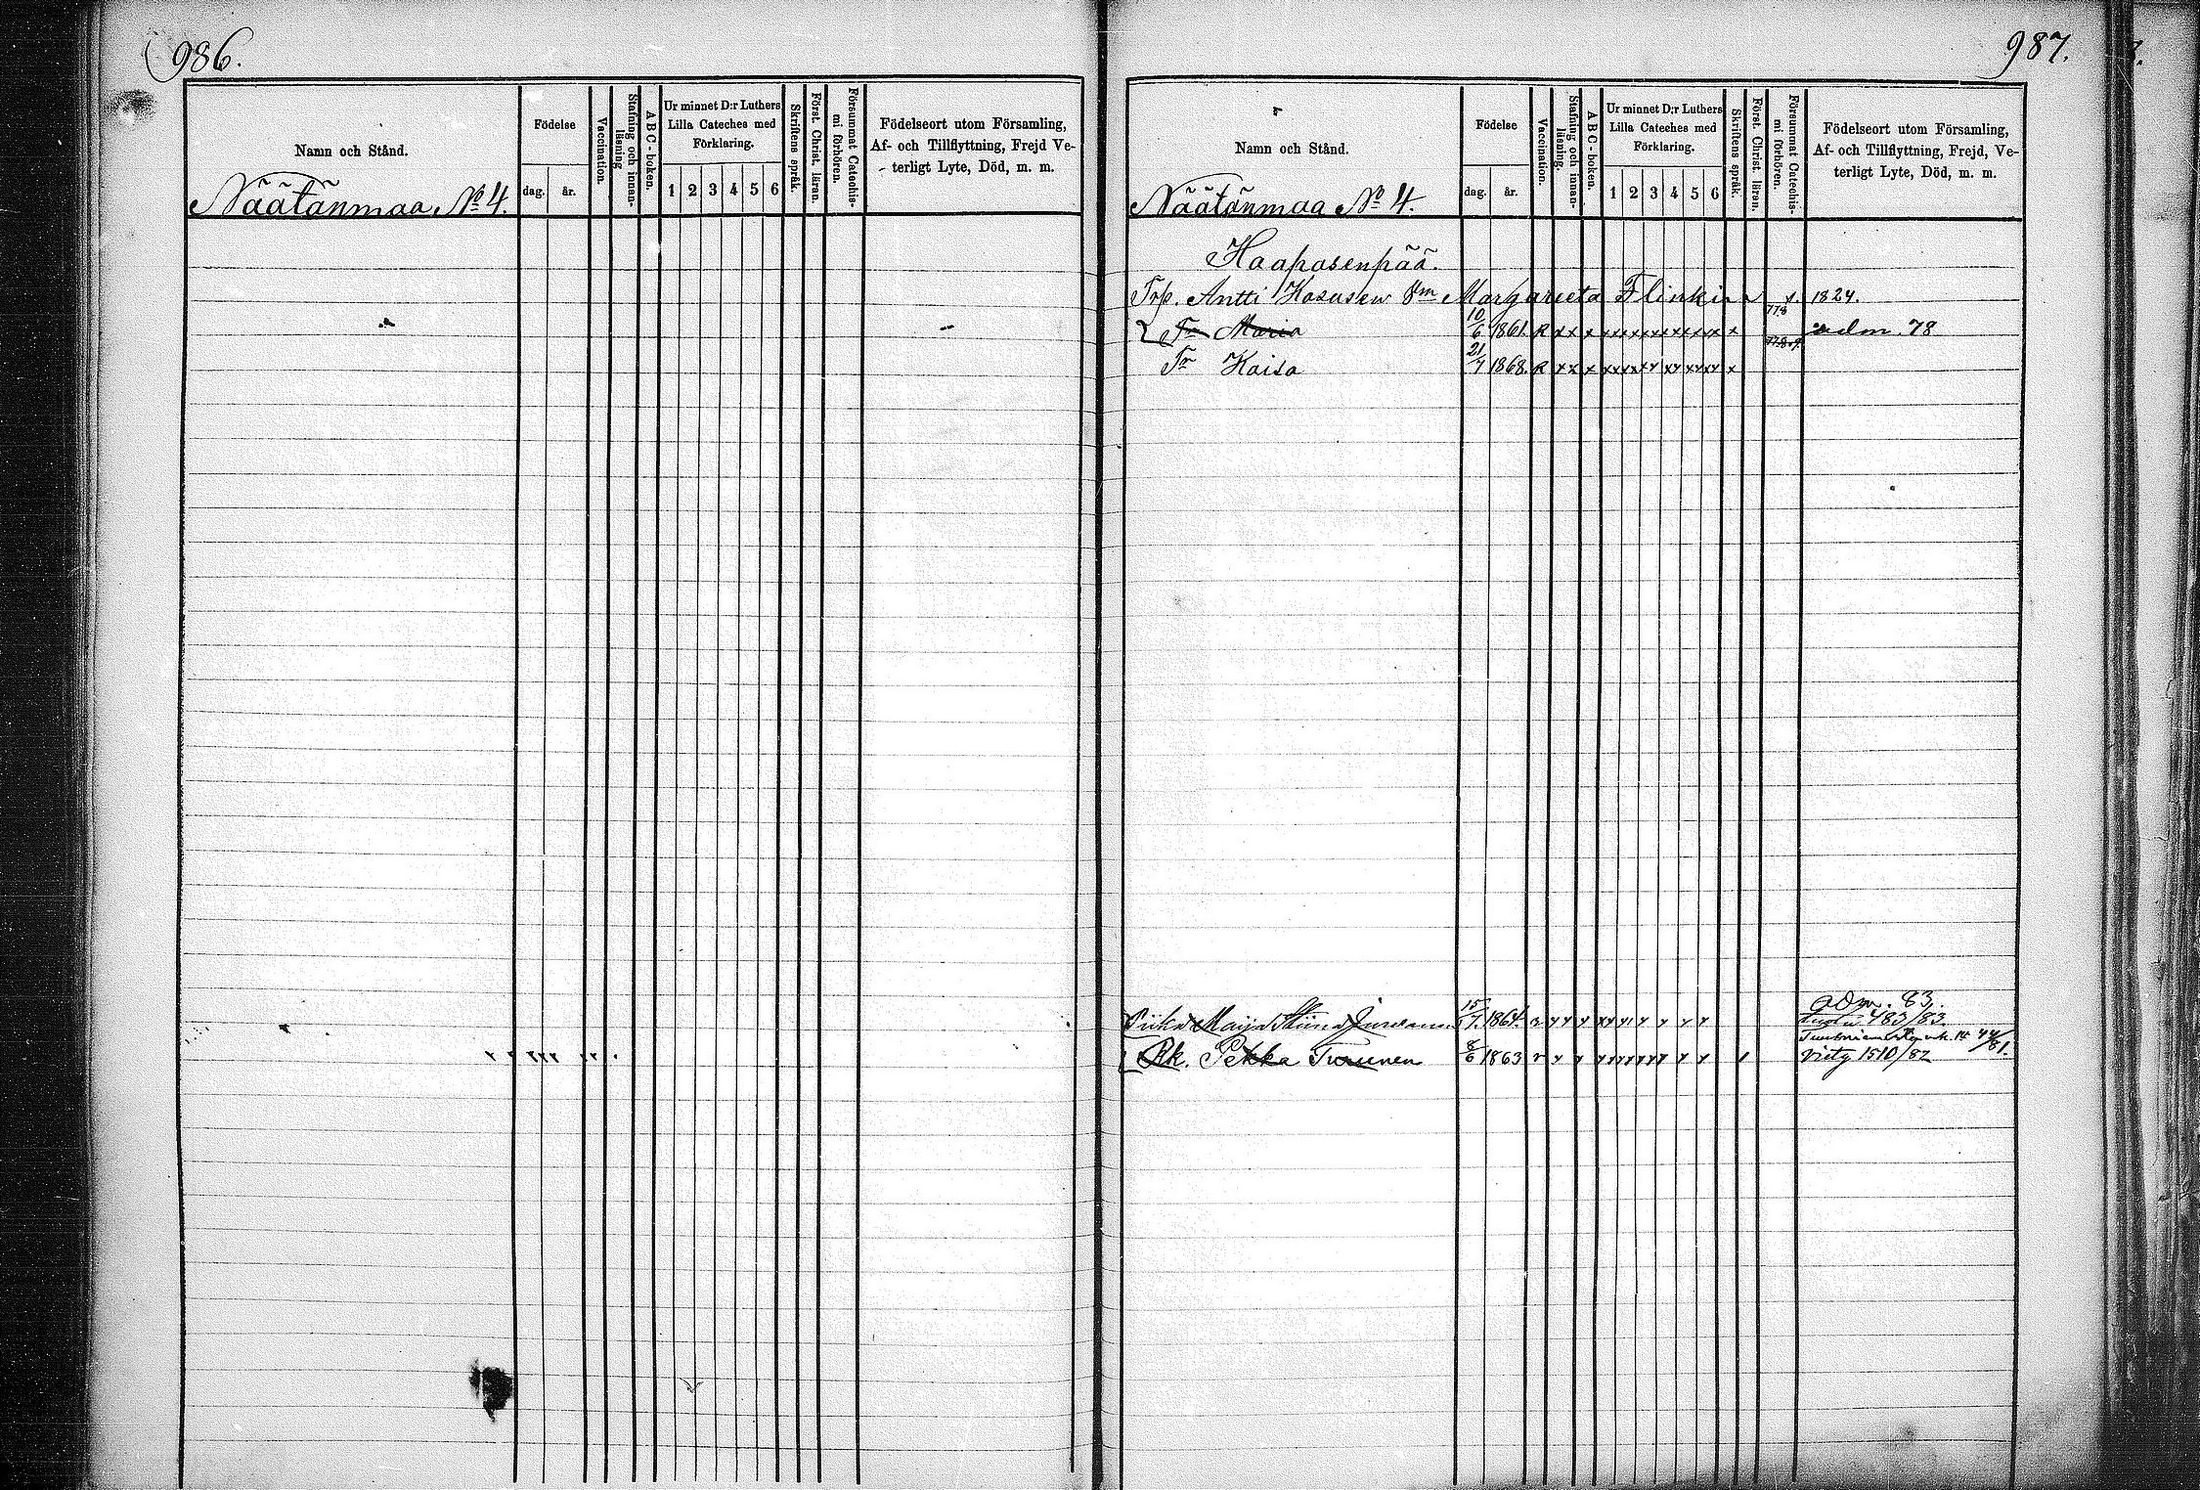 986.
Namn och Stånd.
Näätänmaa No 4.
Födelse
dag. år.
Vaccination.
Stafning och innan-
läsning
ABC-boken.
Ur minnet D:r Luthers
Lilla Cateches med
Förklaring.
1 2 3 4 5 6
Skriftens språk.
Först. Christ. läran.
Försummat Catechis-
mi förhören.
Födelseort utom Församling,
Af- och Tillflyttning, Frejd Ve-
terligt Lyte, Död, m. m.
987.
Namn och Stånd.
Näätänmaa No 4.
Födelse
dag. år.
Vaccination.
Stafning och innan-
läsning.
ABC-boken.
Ur minnet D:r Luthers
Lilla Cateches med
Förklaring.
1 2 3 4 5 6
Skriftens språk.
Först. Christ. läran.
Försummat Catechis-
mi förhören.
Födelseort utom Församling,
Af- och Tillflyttning, Frejd, Ve-
terligt Lyte, Död, m. m.
Haapasenpää.
Antti Kosusen Margareeta Flinkin 1824.
Tr Maria 10/6 1861. R x x x x adm. 78
Tr Kaisa 21/7 1868. R x x x x
Maija Stiina 1864. adm. 83.
483/83.
Pekka Turunen 8/6 1863 1510/82